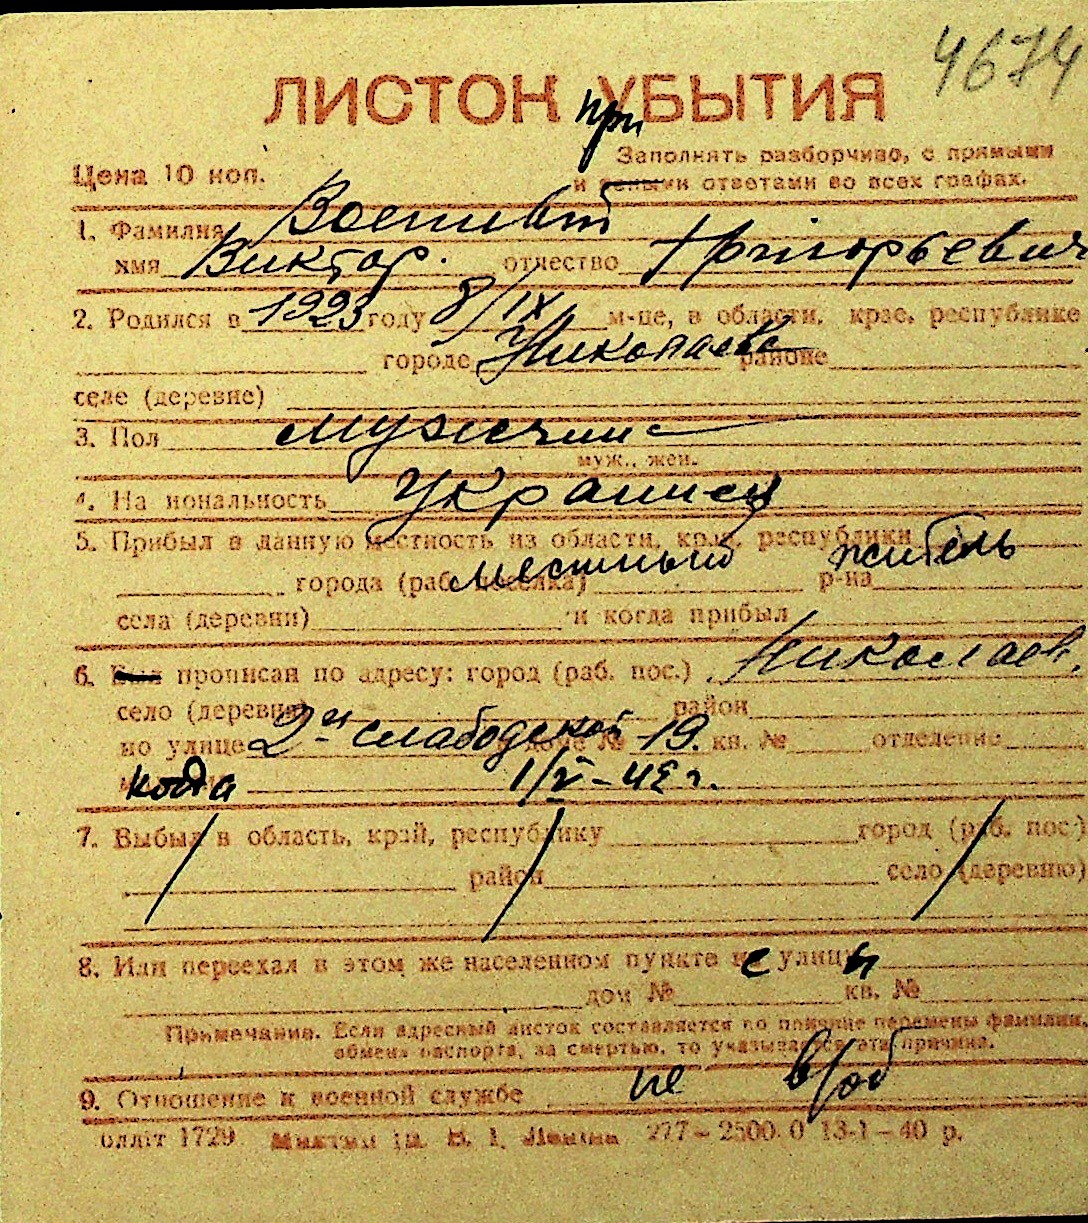 4674
ЛИСТОК УБЫТИЯ
при
Цена 10 коп.
Заполнять разборчиво, с прямыми
и ясными ответами во всех графах.
1. Фамилия
имя Виктор. отчество Григорьевич
2. Родился в 1923 году 8/IX м-це, в области, крае, республике
городе Николаеве районе
селе (деревне)
3. Пол мужчина
муж., жен.
4. Национальность Украинец
5. Прибыл в данную местность из области, края, республики
местный житель
города (раб. поселка) р-на
села (деревни) и когда прибыл
6. Был прописан по адресу: город (раб. пос.) Николаев.
село (деревня) район
по улице 2й слабодской дом № 19. кв. № отделение
когда 1/V-42 г.
7. Выбыл в область, край, республику город (раб. пос.)
район село (деревню)
8. Или переехал в этом же населенном пункте с улицы
дом № кв. №
Примечание. Если адресный листок составляется по причине перемены фамилии,
обмена паспорта, за смертью, то указывается эта причина.
9. Отношение к военной службе не в/об
1729 277-2500.0 13-1-40 р.